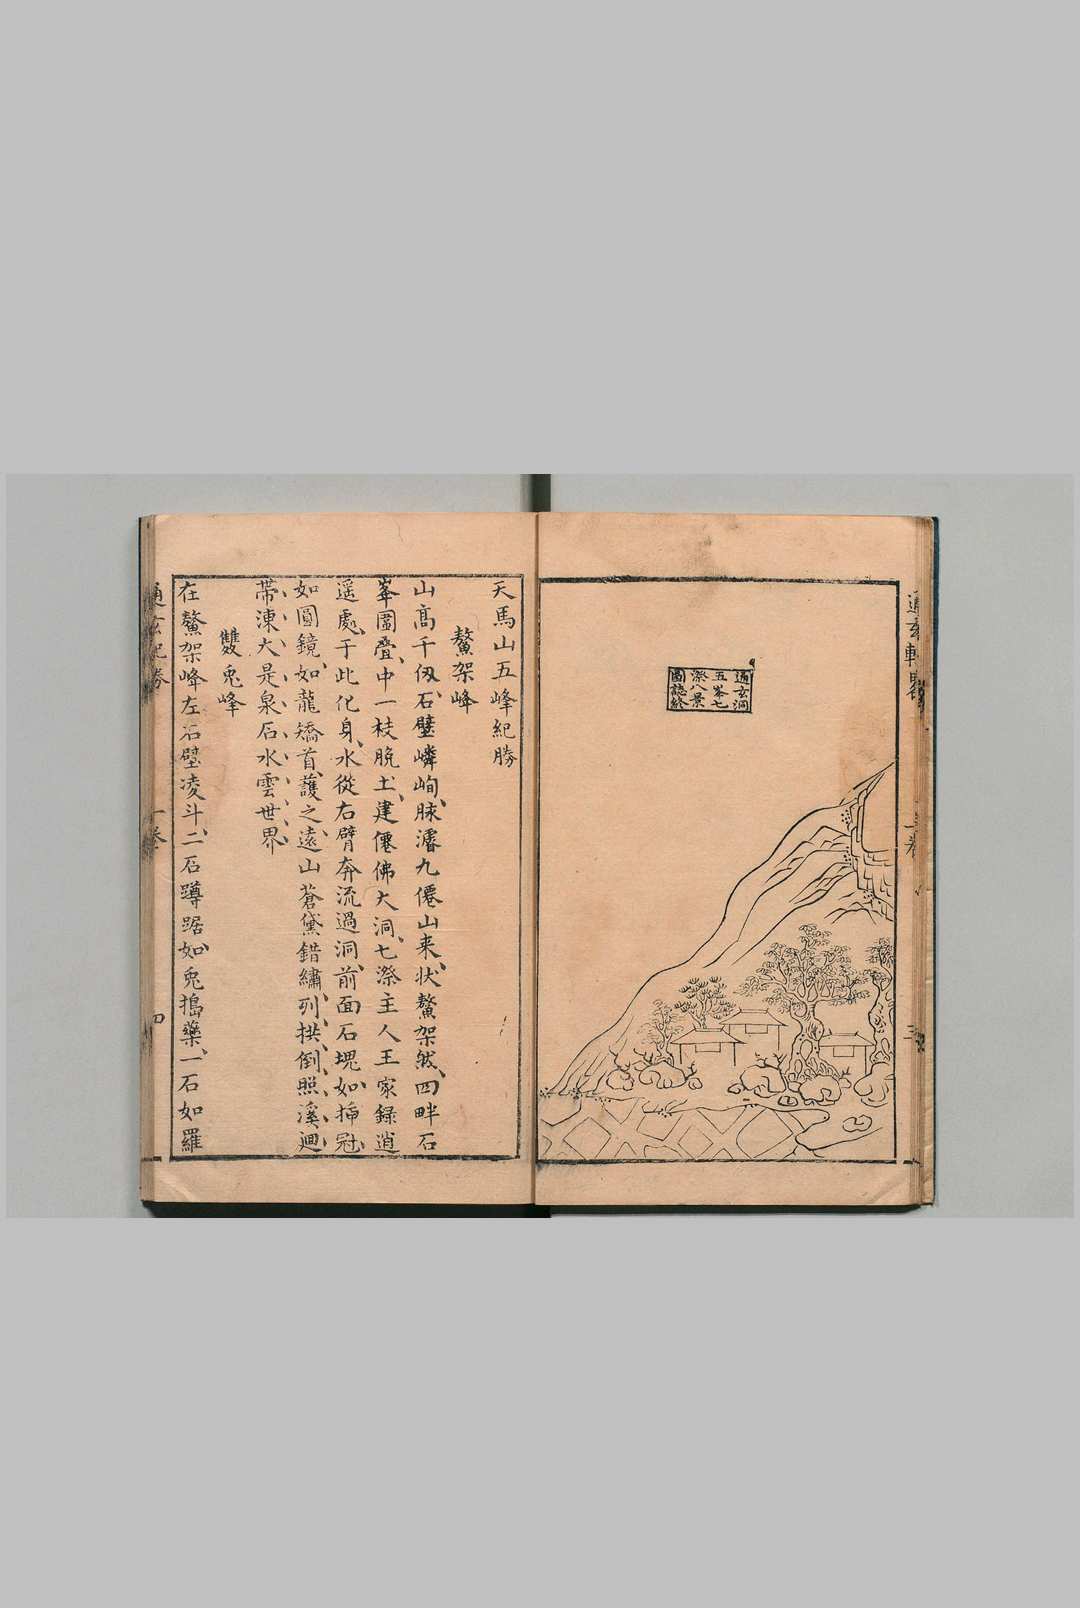 通玄
一卷
三
通玄洞
五峯七
漈八景
圖誌終
天馬山五峰紀勝
鰲架峰
山高千仭石壁嶙峋脉濬九僊山来状鰲架然四畔石
峯圍疊中一枝脫土建僊佛大洞七漈主人王家錄逍
遥處于此化身水從右臂奔流過洞前面石塊如揷冠
如圓鏡如龍矯首護之遠山蒼黛錯繡列拱倒照溪迴
帶湅大是泉石水雲世界
雙兎峰
在鰲架峰左石壁凌斗二石蹲踞如兎搗藥一石如羅
通玄紀勝
一卷
四